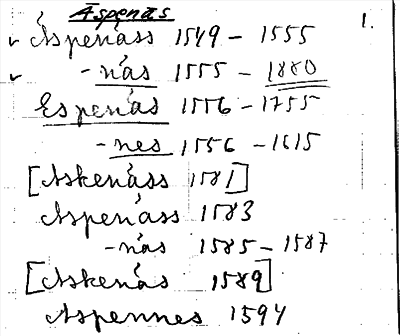 Äspenäs 1.
Äspenäss 1549 – 1555
-näs 1555 – 1880
Espenäs 1556 – 1755
-nes 1556 – 1615
[Askenäss 1581]
Aspenäss 1583
-näs 1585 – 1587
[Askenäs 1589]
Aspennes 1594